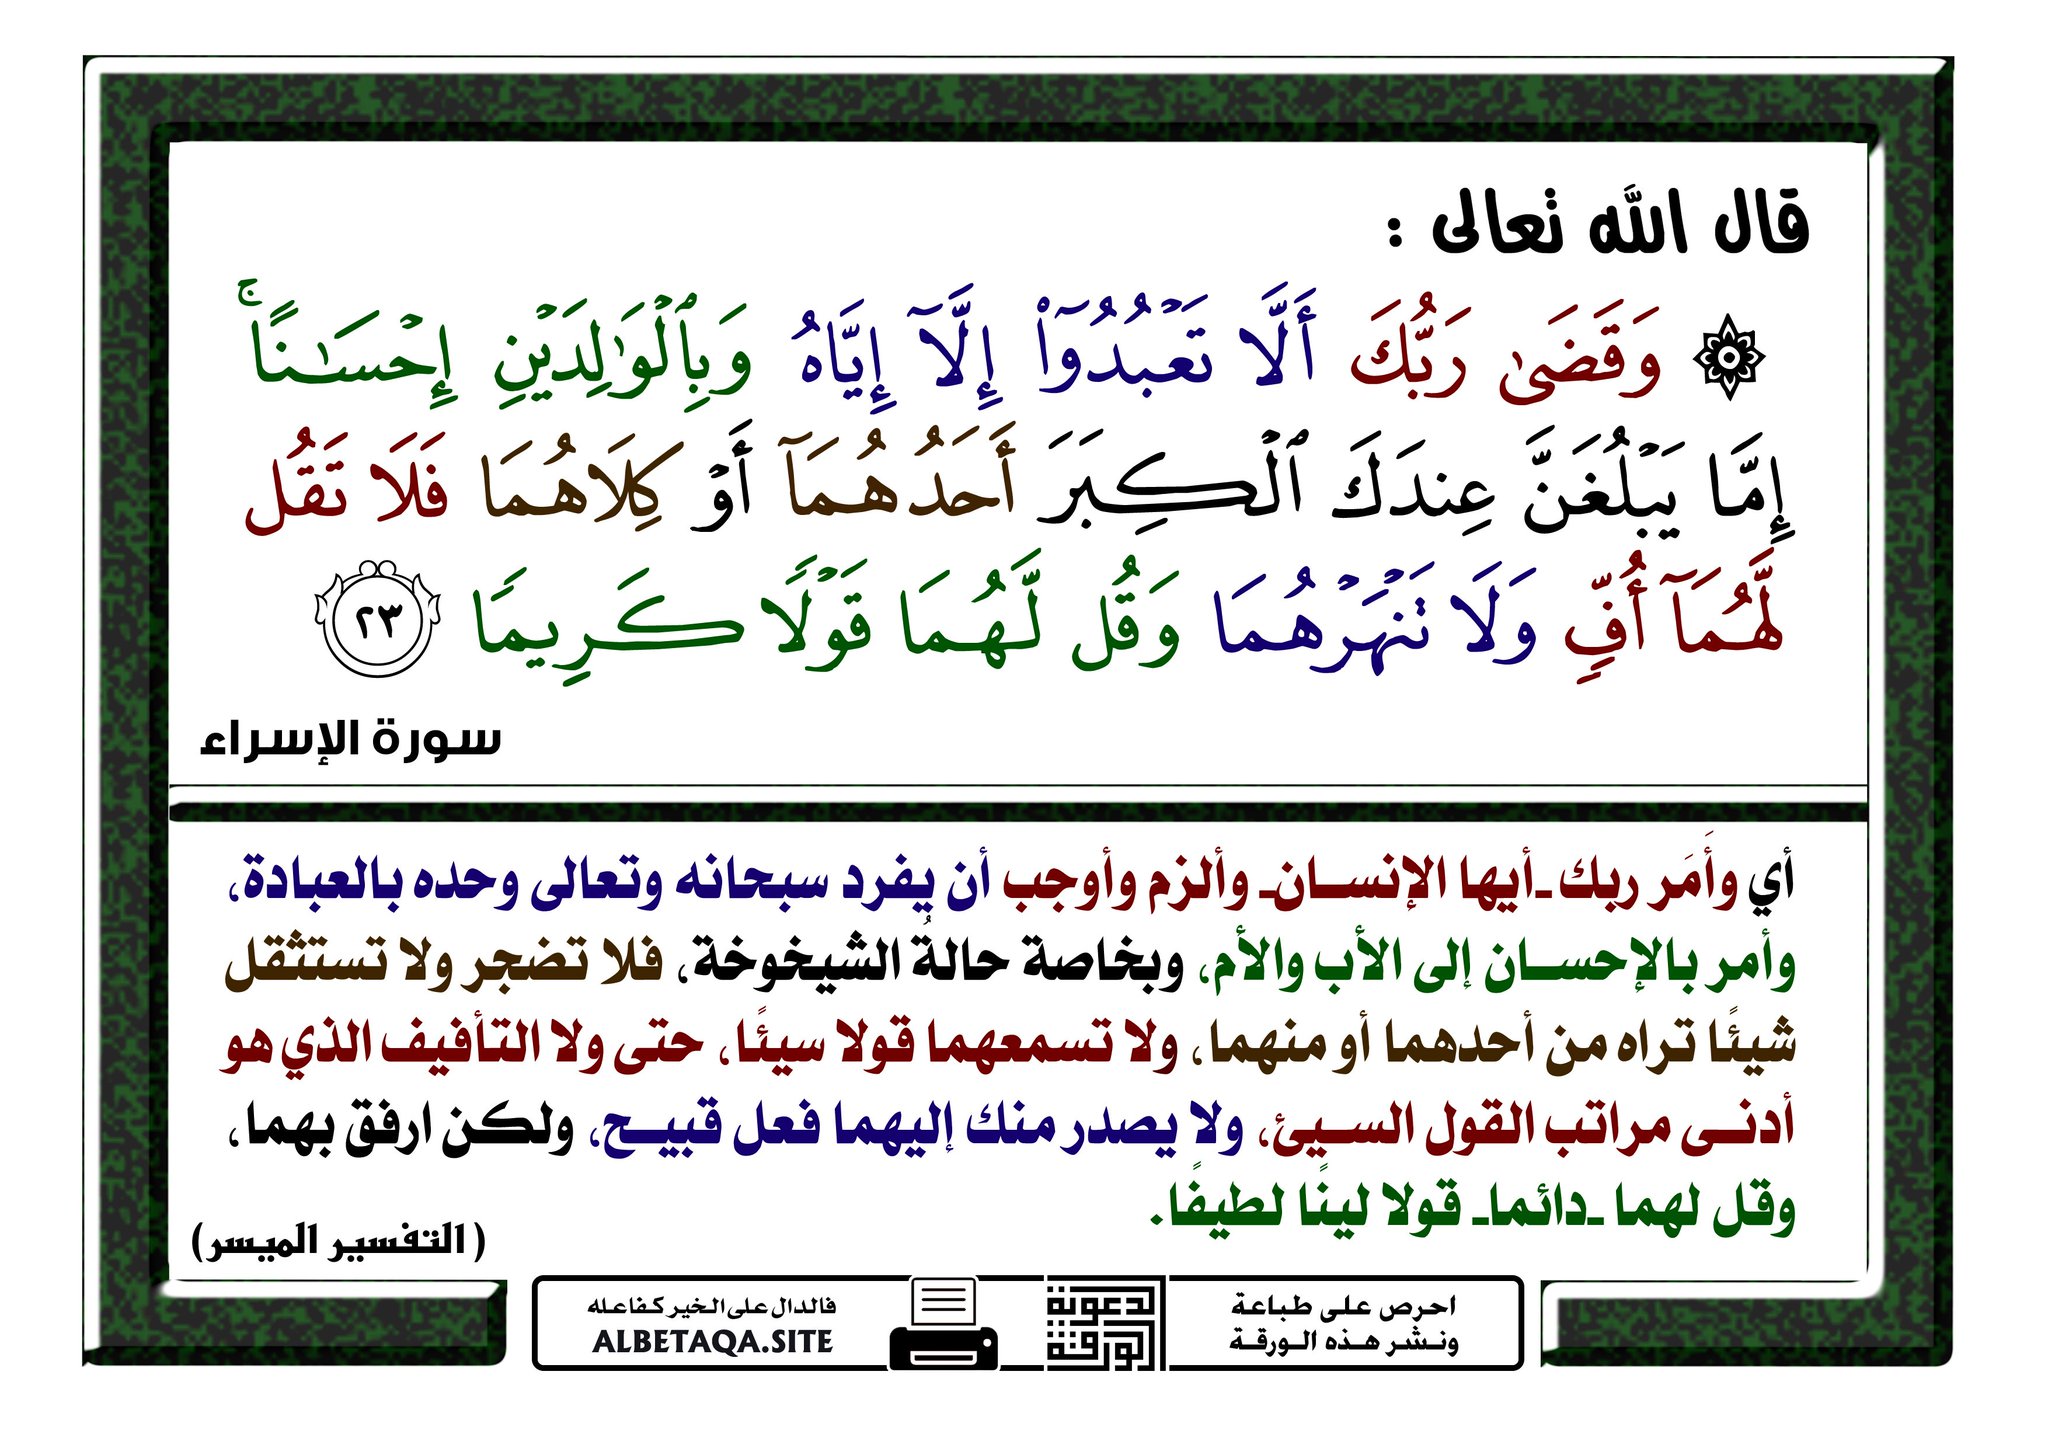 قال الله تعالى :
۞ وَقَضَىٰ رَبُّكَ أَلَّا تَعۡبُدُوٓاْ إِلَّآ إِيَّاهُ وَبِٱلۡوَٰلِدَيۡنِ إِحۡسَٰنًاۚ
إِمَّا يَبۡلُغَنَّ عِندَكَ ٱلۡكِبَرَ أَحَدُهُمَآ أَوۡ كِلَاهُمَا فَلَا تَقُل
لَّهُمَآ أُفّٖ وَلَا تَنۡهَرۡهُمَا وَقُل لَّهُمَا قَوۡلٗا كَرِيمٗا ٢٣
سورة الإسراء
أي وأَمَر ربك ـأيها الإنسـانـ وألزم وأوجب أن يفرد سبحانه وتعالى وحده بالعبادة،
وأمر بالإحسـان إلى الأب والأم، وبخاصة حالةُ الشيخوخة، فلا تضجر ولا تستثقل
شيئًا تراه من أحدهما أو منهما، ولا تسمعهما قولا سيئًا، حتى ولا التأفيف الذي هو
أدنـى مراتب القول السـيئ، ولا يصدر منك إليهما فعل قبيـح، ولكن ارفق بهما،
وقل لهما ـدائماـ قولا لينًا لطيفًا.
(التفسير الميسر)
احرص على طباعة
ونـشر هـذه الـورقـة
الدعوية
الورقة
فالدال على الخير كفاعله
ALBETAQA.SITE